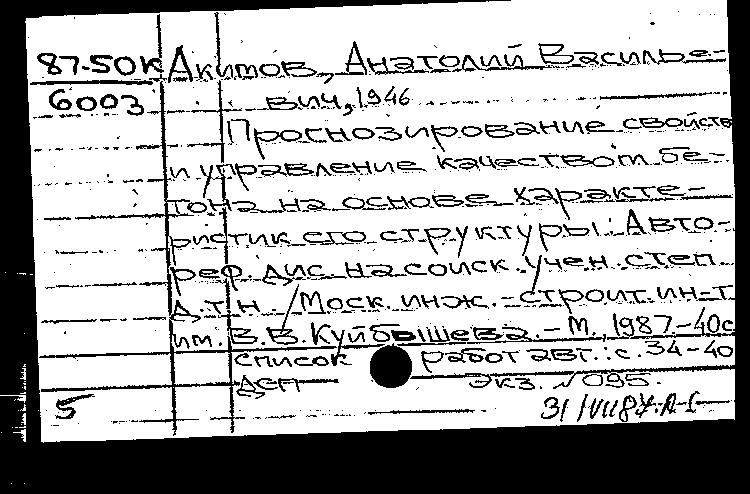 87-50К Акимов, Анатолий Василье-
6003 вич, 1946
Прогнозирование свойств
и управление качеством бе-
тона на основе характе-
ристик его структуры: Авто-
реф. дис. на соиск. учен. степ.
д.т.н. / Моск. инж.-строит. ин-т
им. В.В. Куйбышева. - М., 1987.-40с
список работ авт.: с. 34-40
ДСП Экз. №095.
5